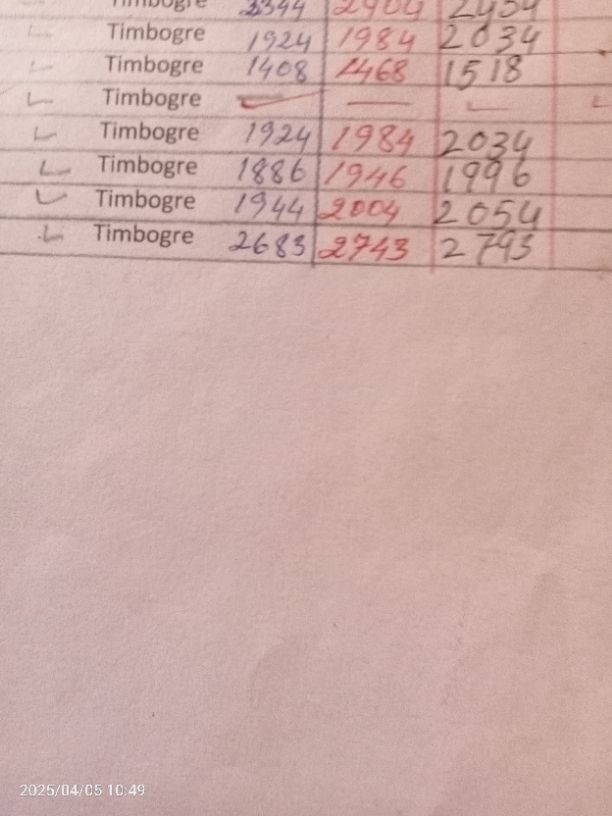 Timbogre 2344 2404 2454
Timbogre 1924 1984 2034
Timbogre 1408 1468 1518
Timbogre
Timbogre 1924 1984 2034
Timbogre 1886 1946 1996
Timbogre 1944 2004 2054
Timbogre 2683 2743 2793
2025/04/05 10:49